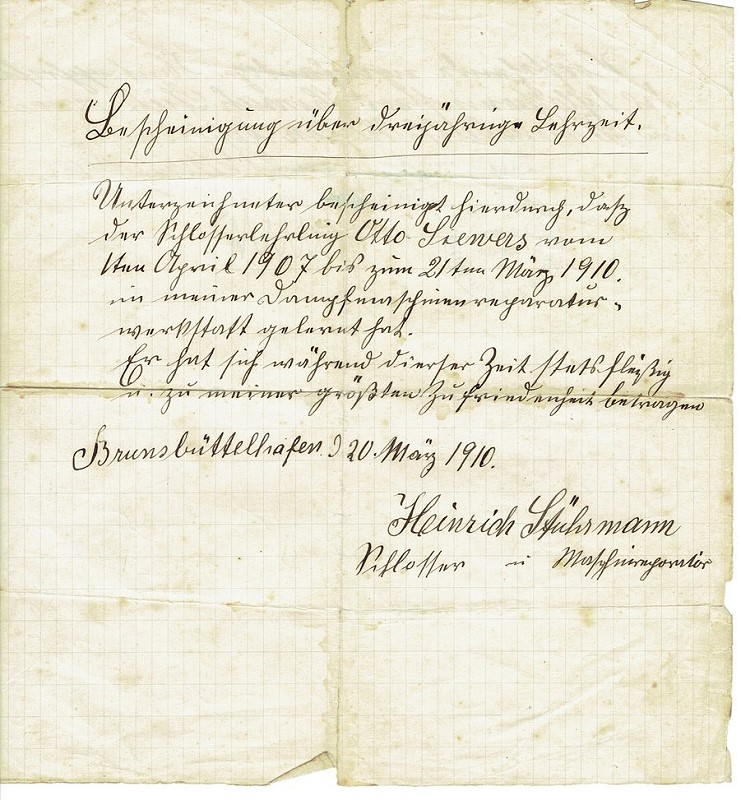 Bescheinigung über dreijährige Lehrzeit.
Unterzeichneter bescheinigt hierdurch, dasz
der Schlosserlehrling Otto Seewers vom
1ten April 1907 bis zum 21ten März 1910.
in meiner Dampfmaschinenreparatur-
werkstatt gelernt hat.
Er hat sich während dierser Zeit stets fleißig
u. zu meiner größten Zufriedenheit betragen
Brunsbüttelhafen d 20. März 1910.
Heinrich Stührmann
Schlosser u Maschinreporatör